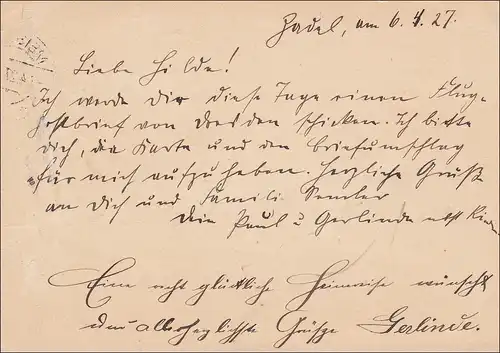 Zadel, am 6.4.27.
Liebe Hilde!
Ich werde Dir diese Tage einen Flug-
postbrief von Dresden schicken. Ich bitte
Dich, die Karte und den Briefumschlag
für mich aufzuheben. Herzliche Grüße
an Dich und Famili Semler
Dein Paul u Gerlinde nebst Kinder.
Eine recht glückliche Heimreise wünscht
und allerherzlichste Grüße Gerlinde.